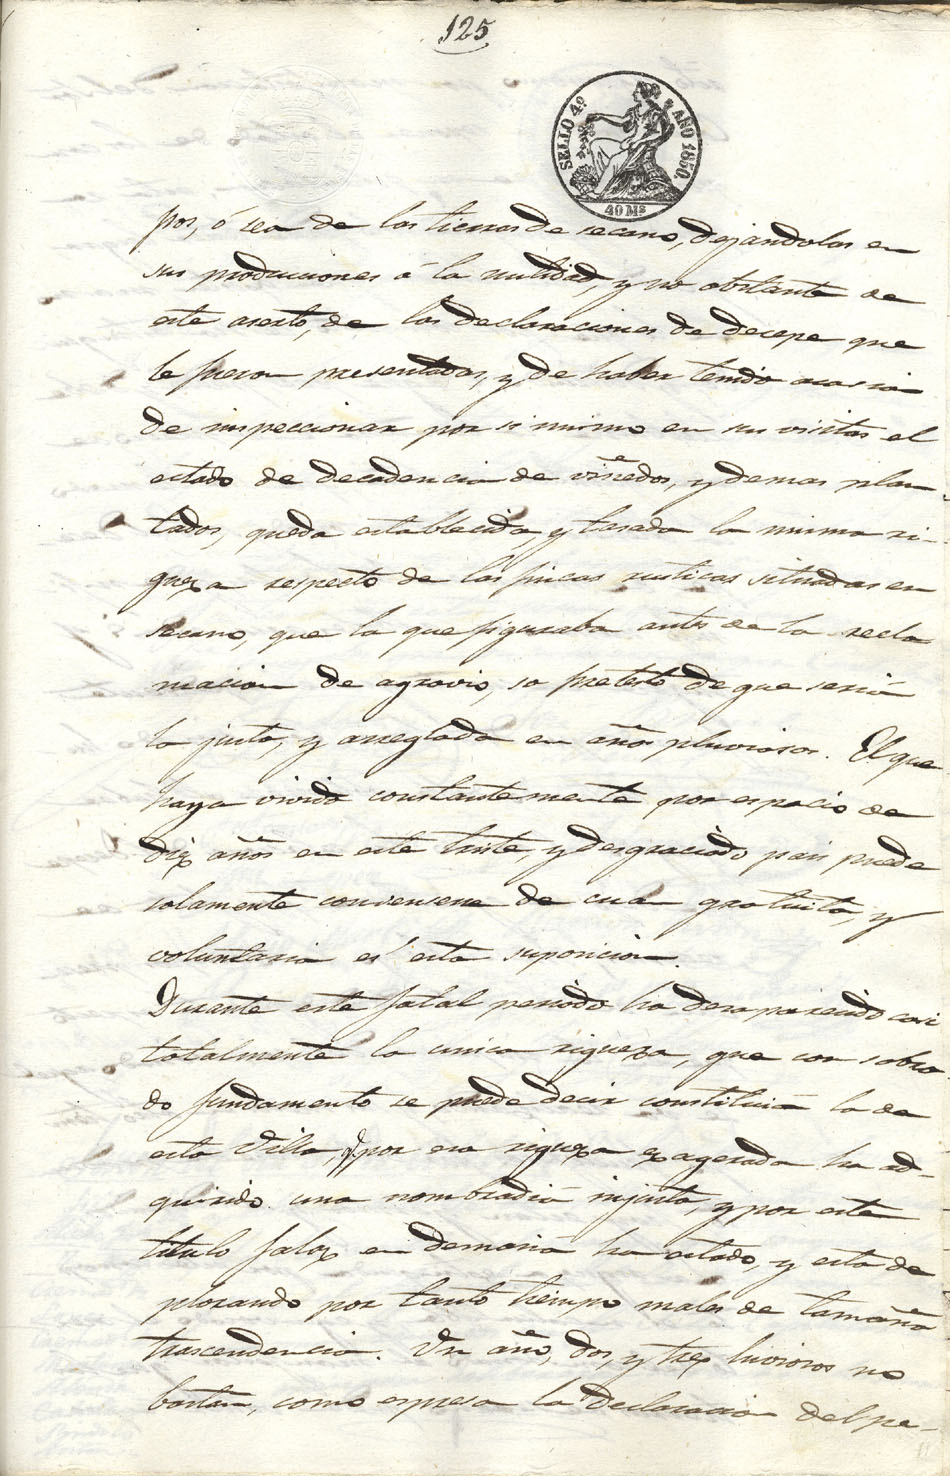 125
SELLO 4.º AÑO 1850.
40 Ms
pos, ó sea de las tierras de secano, dejandolas en
sus producciones á la nulidad, y no obstante de
este aserto, de las declaraciones de decepe que
le fueron presentadas, y de haber tenido ocasion
de inspeccionar por si mismo en sus visitas el
estado de decadencia de viñedos, y demas plan-
tados, queda establecida y tasada la misma ri-
queza respecto de las fincas rusticas situadas en
secano, que la que figuraba antes de la recla
macion de agravio, so pretesto de que seria
la justa, y arreglada en años pluviosos. El que
haya vivido constantemente por espacio de
diez años en este triste, y desgraciado pais puede
solamente convencerse de cuan gratuita, y
voluntaria es esta suposicion.
Durante este fatal periodo ha desaparecido casi
totalmente la unica riqueza, que con sobra
do fundamento se puede decir constituia la de
esta Villa, por esa riqueza exagerada ha ad-
quirido una nombradia injusta, y por este
titulo falaz en demasia ha estado, y esta de
plorando por tanto tiempo males de tamaña
trascendencia. Un año, dos, y tres lluviosos no
bastan, como espresa la declaracion del pe-